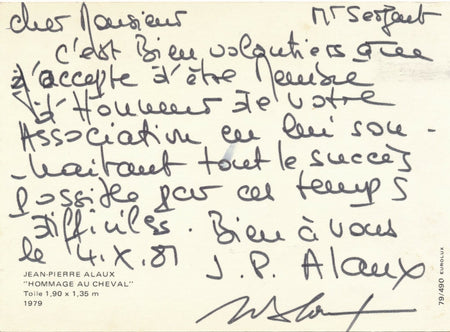 Cher Monsieur
Mr Serjent
C'est Bien volontiers que
j'accepte d'être Membre
d'Honneur de votre
Association en lui sou-
haitant tout le succès
possible par ces temps
difficiles. Bien à vous
le 4.X.81 J.P. Alaux
JEAN-PIERRE ALAUX
"HOMMAGE AU CHEVAL"
Toile 1,90 x 1,35 m
1979
79/490 EUROLUX